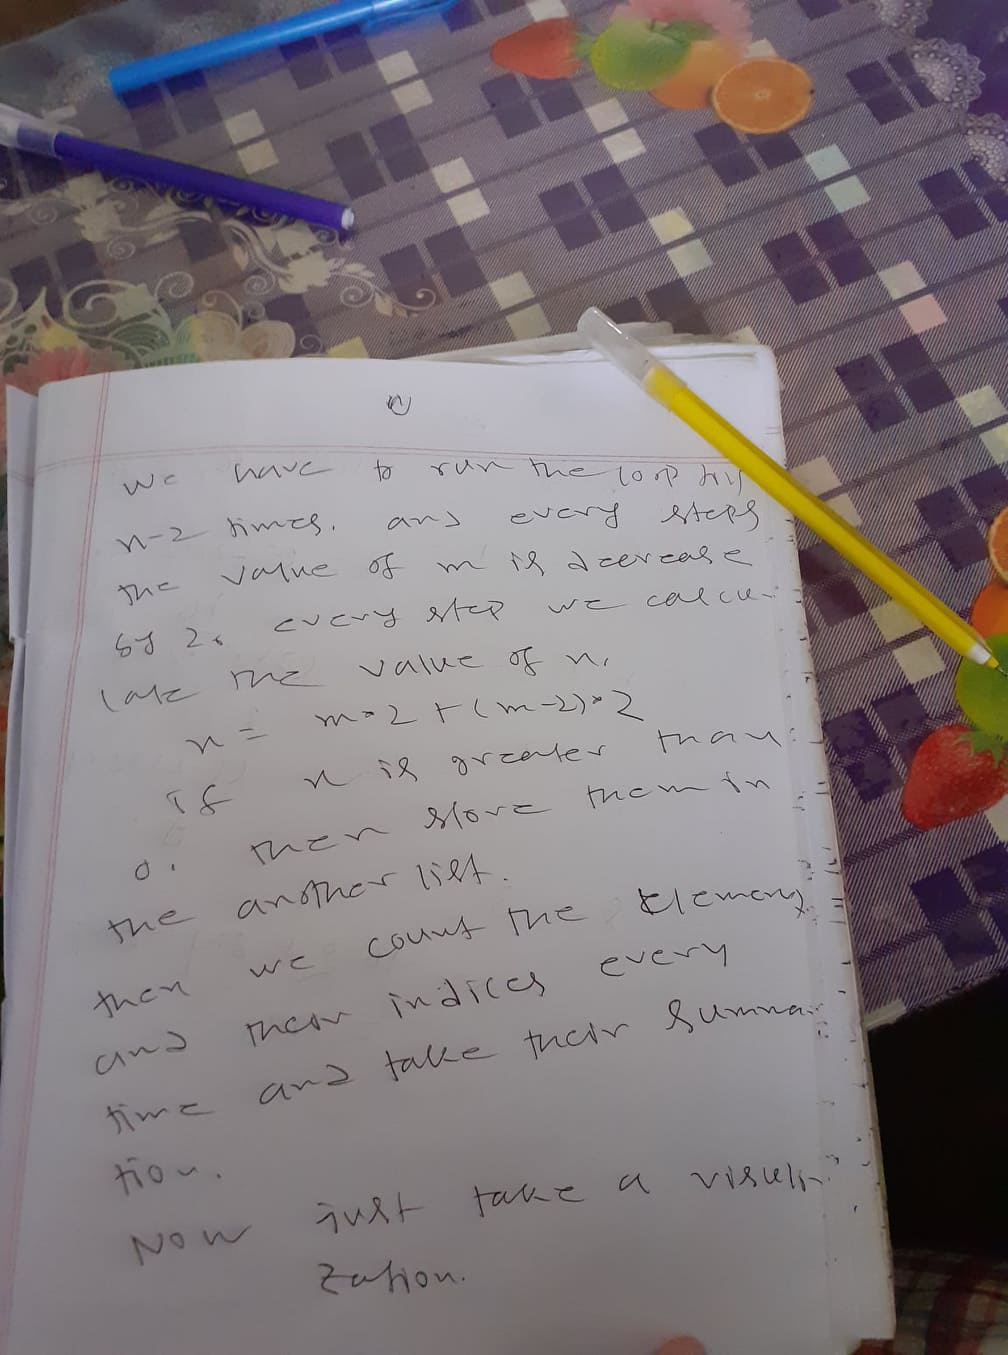 we have to run the loop till
n-2 times. and every steps
the value of m is decrease
by 2. every step we calcu-
late the value of n.
n = m*2+(m-2)*2
if n is greater than
0. then store them in
the another list.
then we count the elements
and their indices every
time and take their summa-
tion.
Now just take a visuli-
zation.